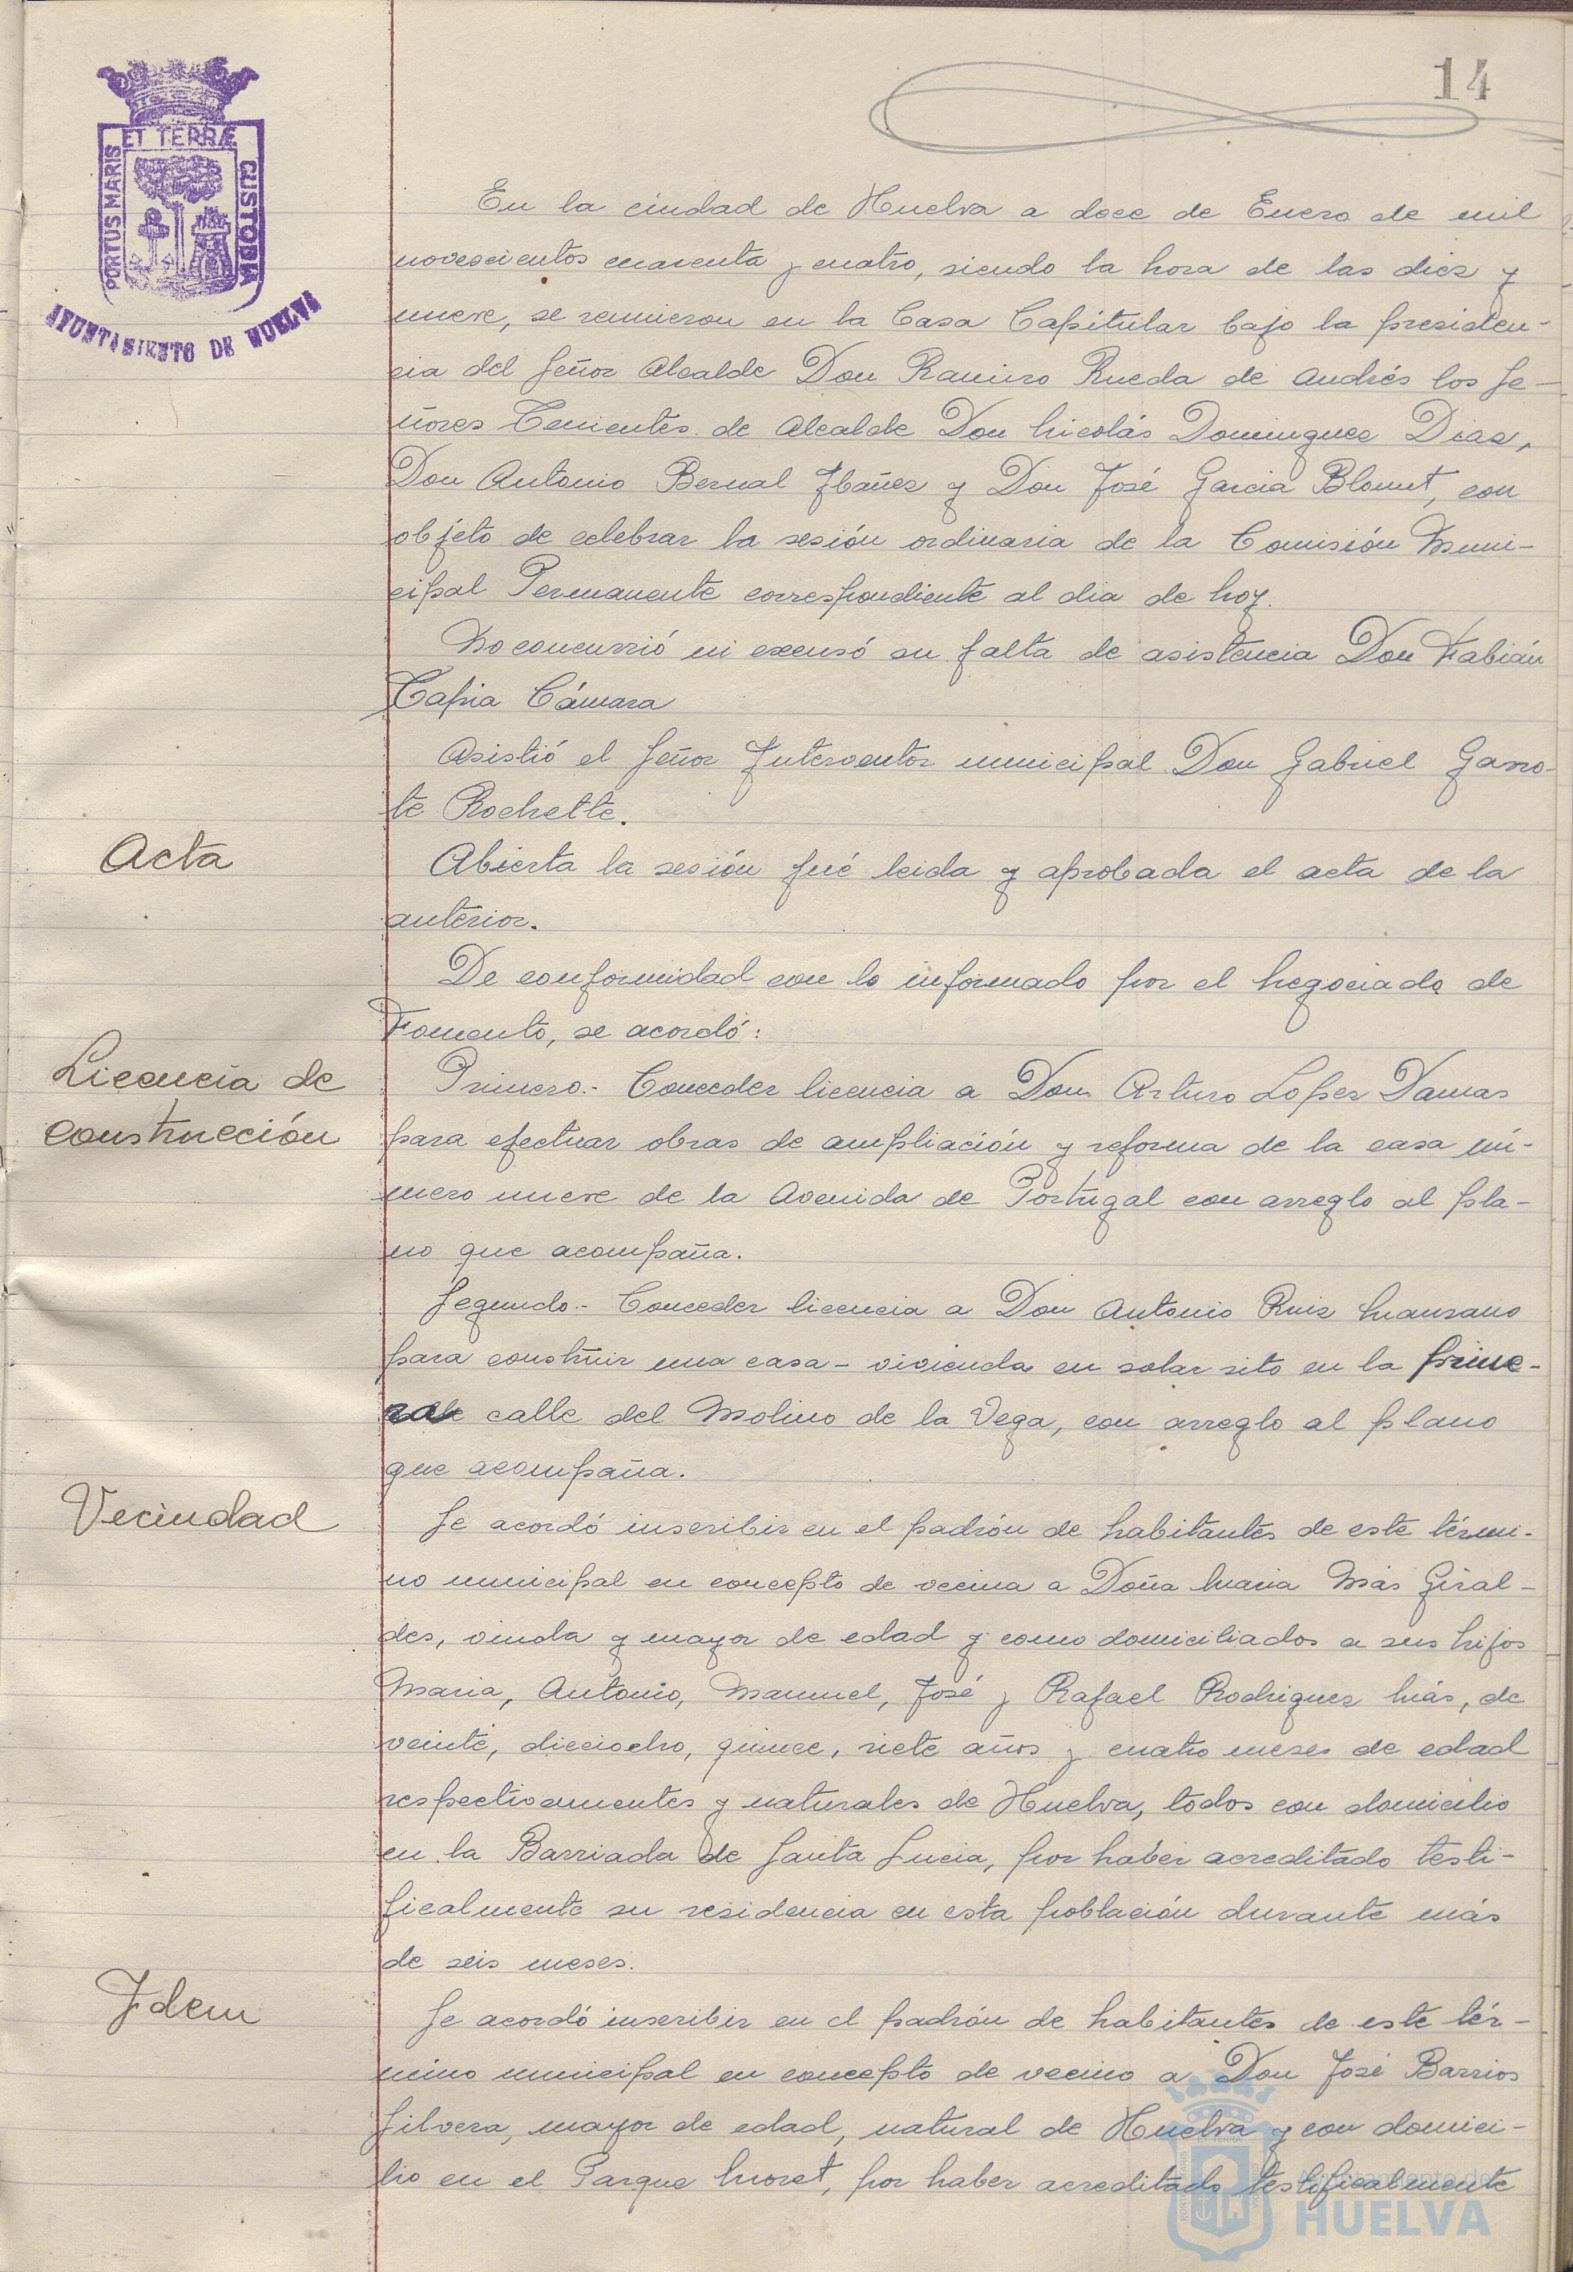 14
PORTUS MARIS
ET TERRÆ
CUSTODIA
AYUNTAMIENTO DE HUELVA
En la ciudad de Huelva a doce de Enero de mil
novescientos cuarenta y cuatro, siendo la hora de las diez y
nueve, se reunieron en la Casa Capitular bajo la presiden-
cia del Señor Alcalde Don Ramiro Rueda de Andrés los Se-
ñores Tenientes de Alcalde Don Nicolás Dominguez Diaz,
Don Antonio Bernal Ibañez y Don José Garcia Blomet, con
objeto de celebrar la sesión ordinaria de la Comisión Muni-
cipal Permanente correspondiente al dia de hoy.
No concurrió ni excusó su falta de asistencia Don Fabián
Tapia Cámara
Asistió el Señor Interventor municipal Don Gabriel Garro-
te Rochette.
Acta
Abierta la sesión fué leida y aprobada el acta de la
anterior.
De conformidad con lo informado por el Negociado de
Fomento, se acordó:
Licencia de
construcción
Primero.- Conceder licencia a Don Arturo Lopez Damas
para efectuar obras de ampliación y reforma de la casa nú-
mero nueve de la Avenida de Portugal con arreglo al pla-
no que acompaña.
Segundo.- Conceder licencia a Don Antonio Ruiz Manzano
para construir una casa-vivienda en solar sito en la prime-
ra calle del Molino de la Vega, con arreglo al plano
que acompaña.
Vecindad
Se acordó inscribir en el padrón de habitantes de este térmi-
no municipal en concepto de vecina a Doña Maria Más Giral-
des, viuda y mayor de edad y como domiciliados a sus hijos
Maria, Antonio, Manuel, José y Rafael Rodriguez Más, de
veinte, dieciocho, quince, siete años y cuatro meses de edad
respectivamentes y naturales de Huelva, todos con domicilio
en la Barriada de Santa Lucia, por haber acreditado testi-
ficalmente su residencia en esta población durante más
de seis meses.
Idem
Se acordó inscribir en el padrón de habitantes de este tér-
mino municipal en concepto de vecino a Don José Barrios
Silvera, mayor de edad, natural de Huelva y con domici-
lio en el Parque Moret, por haber acreditado testificalmente
Ayuntamiento de
HUELVA